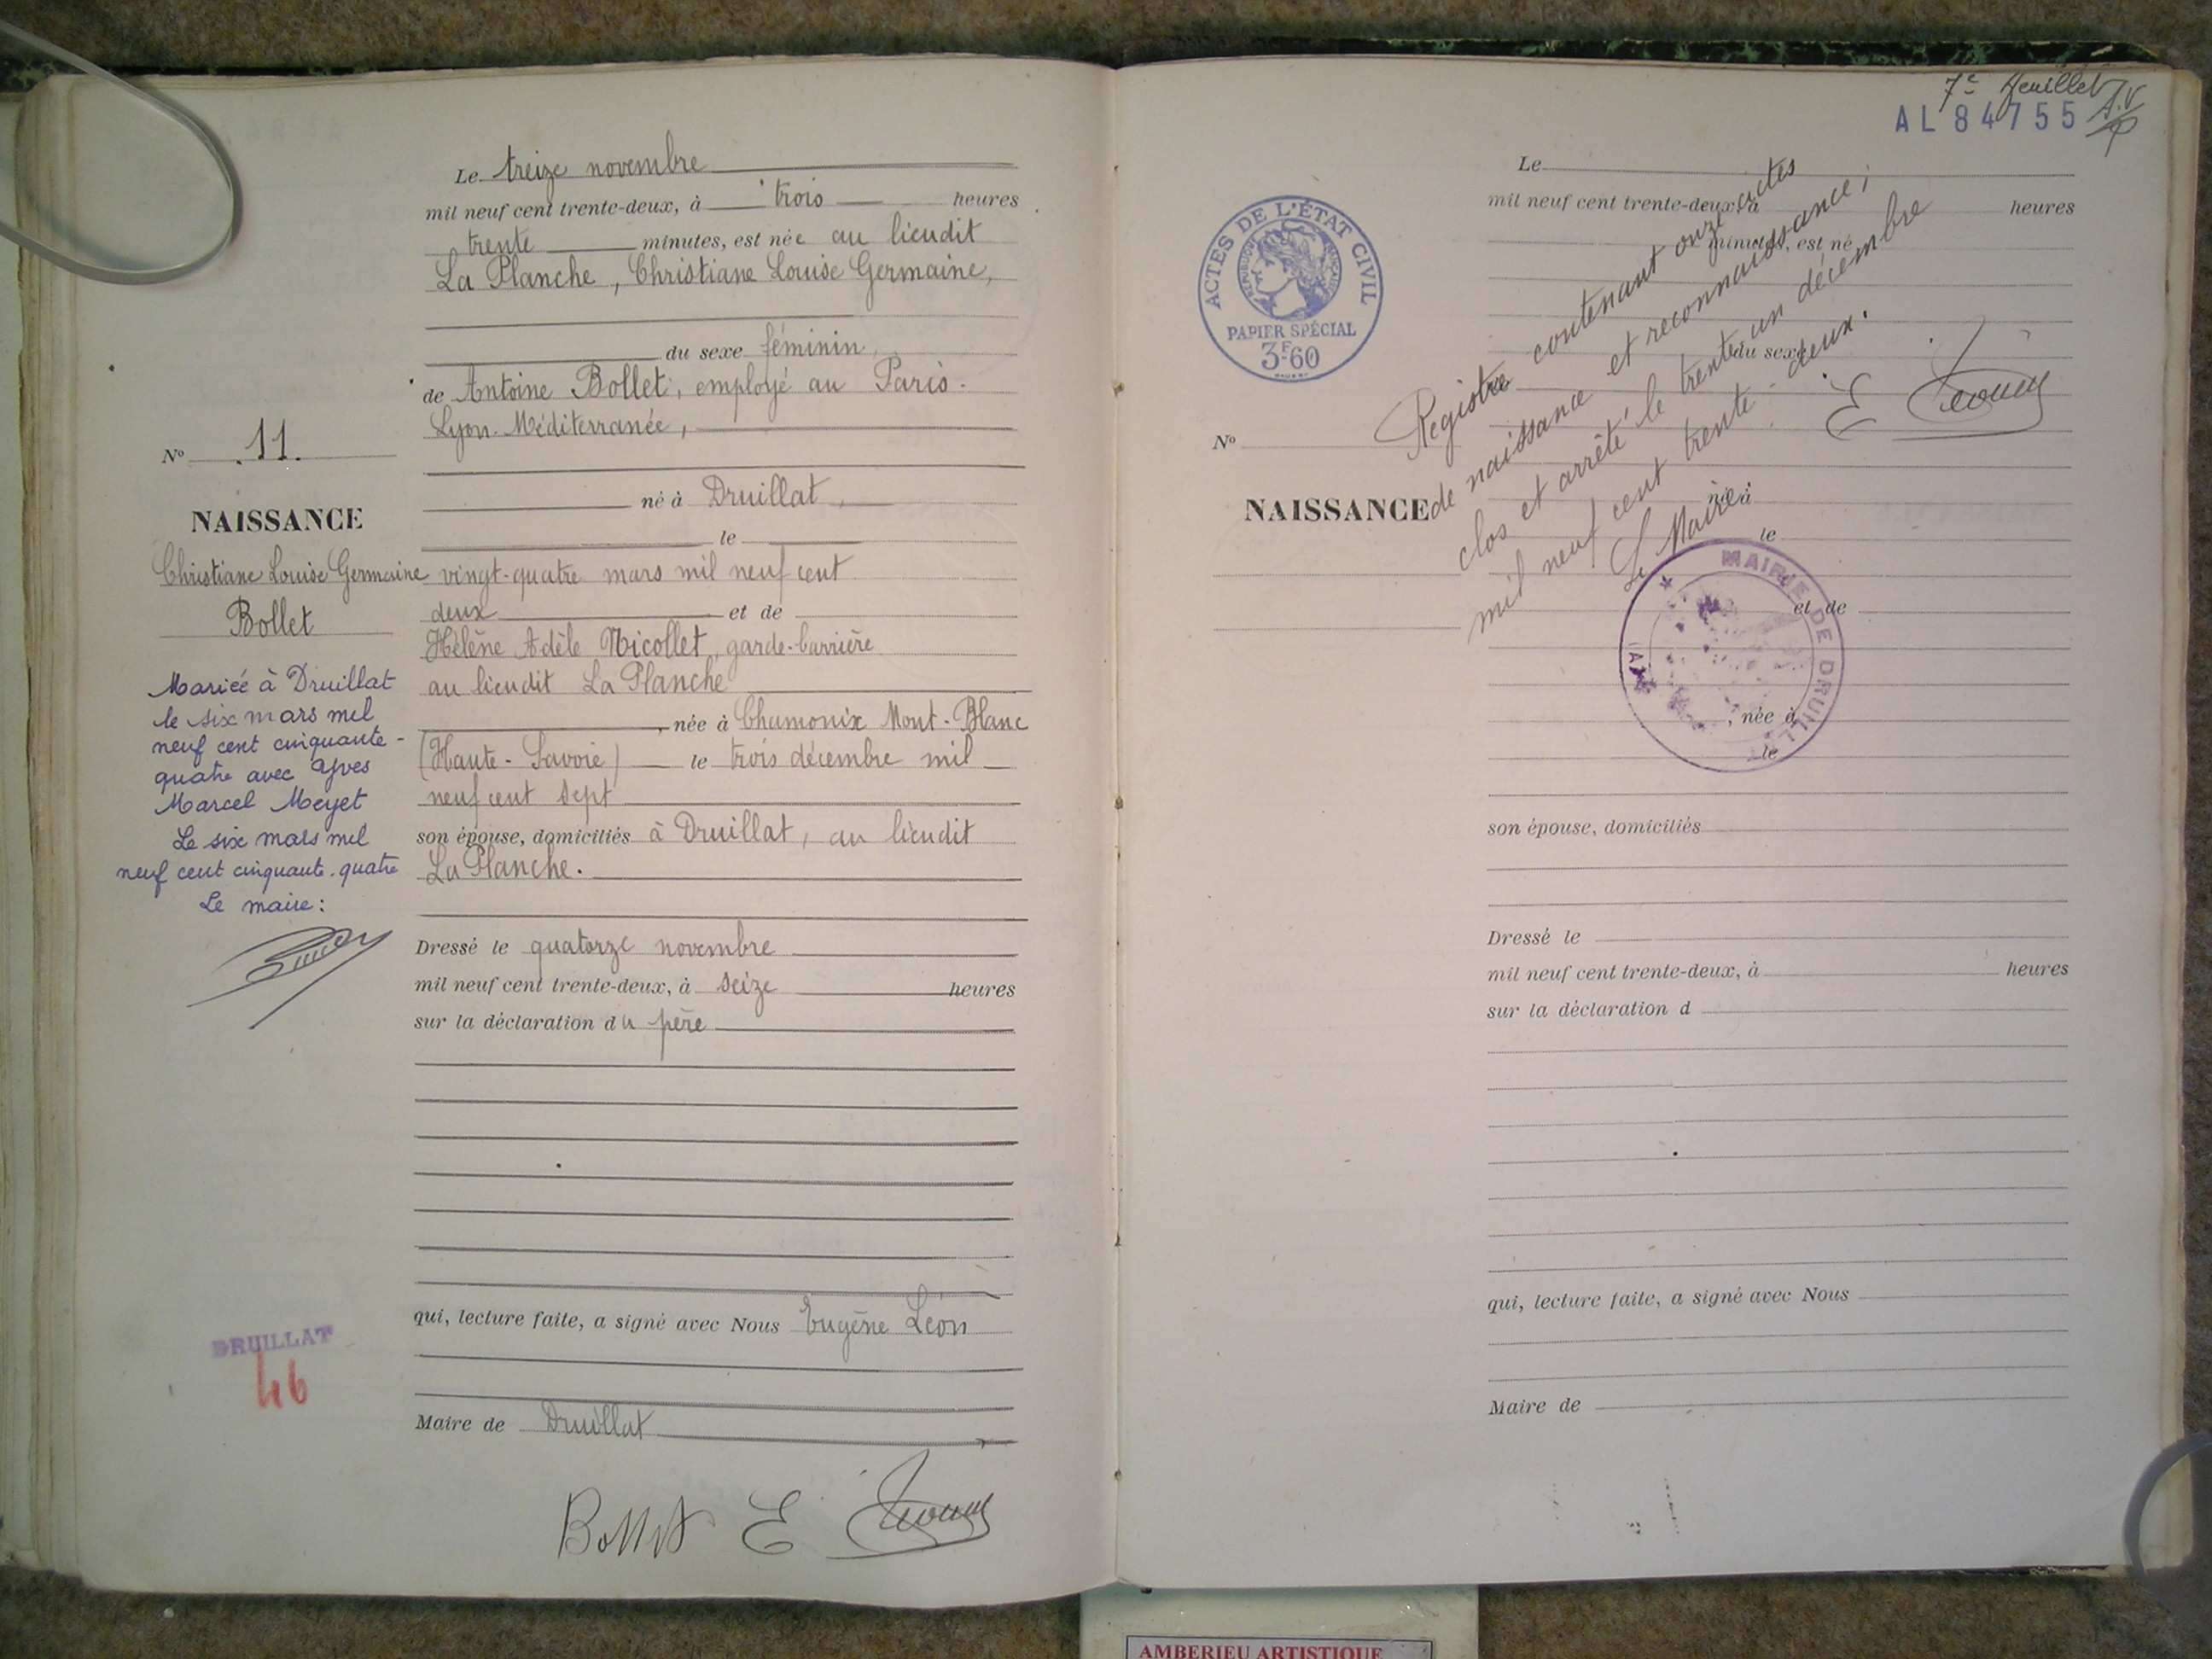 Le treize novembre
mil neuf cent trente-deux, à trois heures
trente minutes, est née au lieudit
La Planche, Christiane Louise Germaine,
du sexe féminin,
de Antoine Bollet, employé au Paris-
Lyon-Méditerranée,
né à Druillat,
le
vingt-quatre mars mil neuf cent
deux et de
Hélène Adèle Nicollet, garde-barrière
au lieudit La Planche
, née à Chamonix Mont-Blanc
(Haute-Savoie) le trois décembre mil
neuf cent sept
son épouse, domiciliés à Druillat, au lieudit
La Planche.
Dressé le quatorze novembre
mil neuf cent trente-deux, à seize heures
sur la déclaration du père
qui, lecture faite, a signé avec Nous Eugène Léon
Maire de Druillat
Bollet E
No 11.
NAISSANCE
Christiane Louise Germaine
Bollet
Mariée à Druillat
le six mars mil
neuf cent cinquante-
quatre avec Yves
Marcel Meyet
Le six mars mil
neuf cent cinquante-quatre
Le maire:
DRUILLAT
46
7e feuillet
AL 84755
ACTES DE L'ÉTAT CIVIL
RÉPUBLIQUE FRANÇAISE
PAPIER SPÉCIAL
3F60
Le
mil neuf cent trente-deux, à heures
minutes, est né
du sexe
No
NAISSANCE
né à
le
et de
, née à
le
son épouse, domiciliés
Dressé le
mil neuf cent trente-deux, à heures
sur la déclaration d
qui, lecture faite, a signé avec Nous
Maire de
Registre contenant onze actes
de naissance et reconnaissance;
clos et arrêté le trente un décembre
mil neuf cent trente-deux.
Le Maire
E
MAIRIE DE DRUILL
AMBERIEU ARTISTIQUE